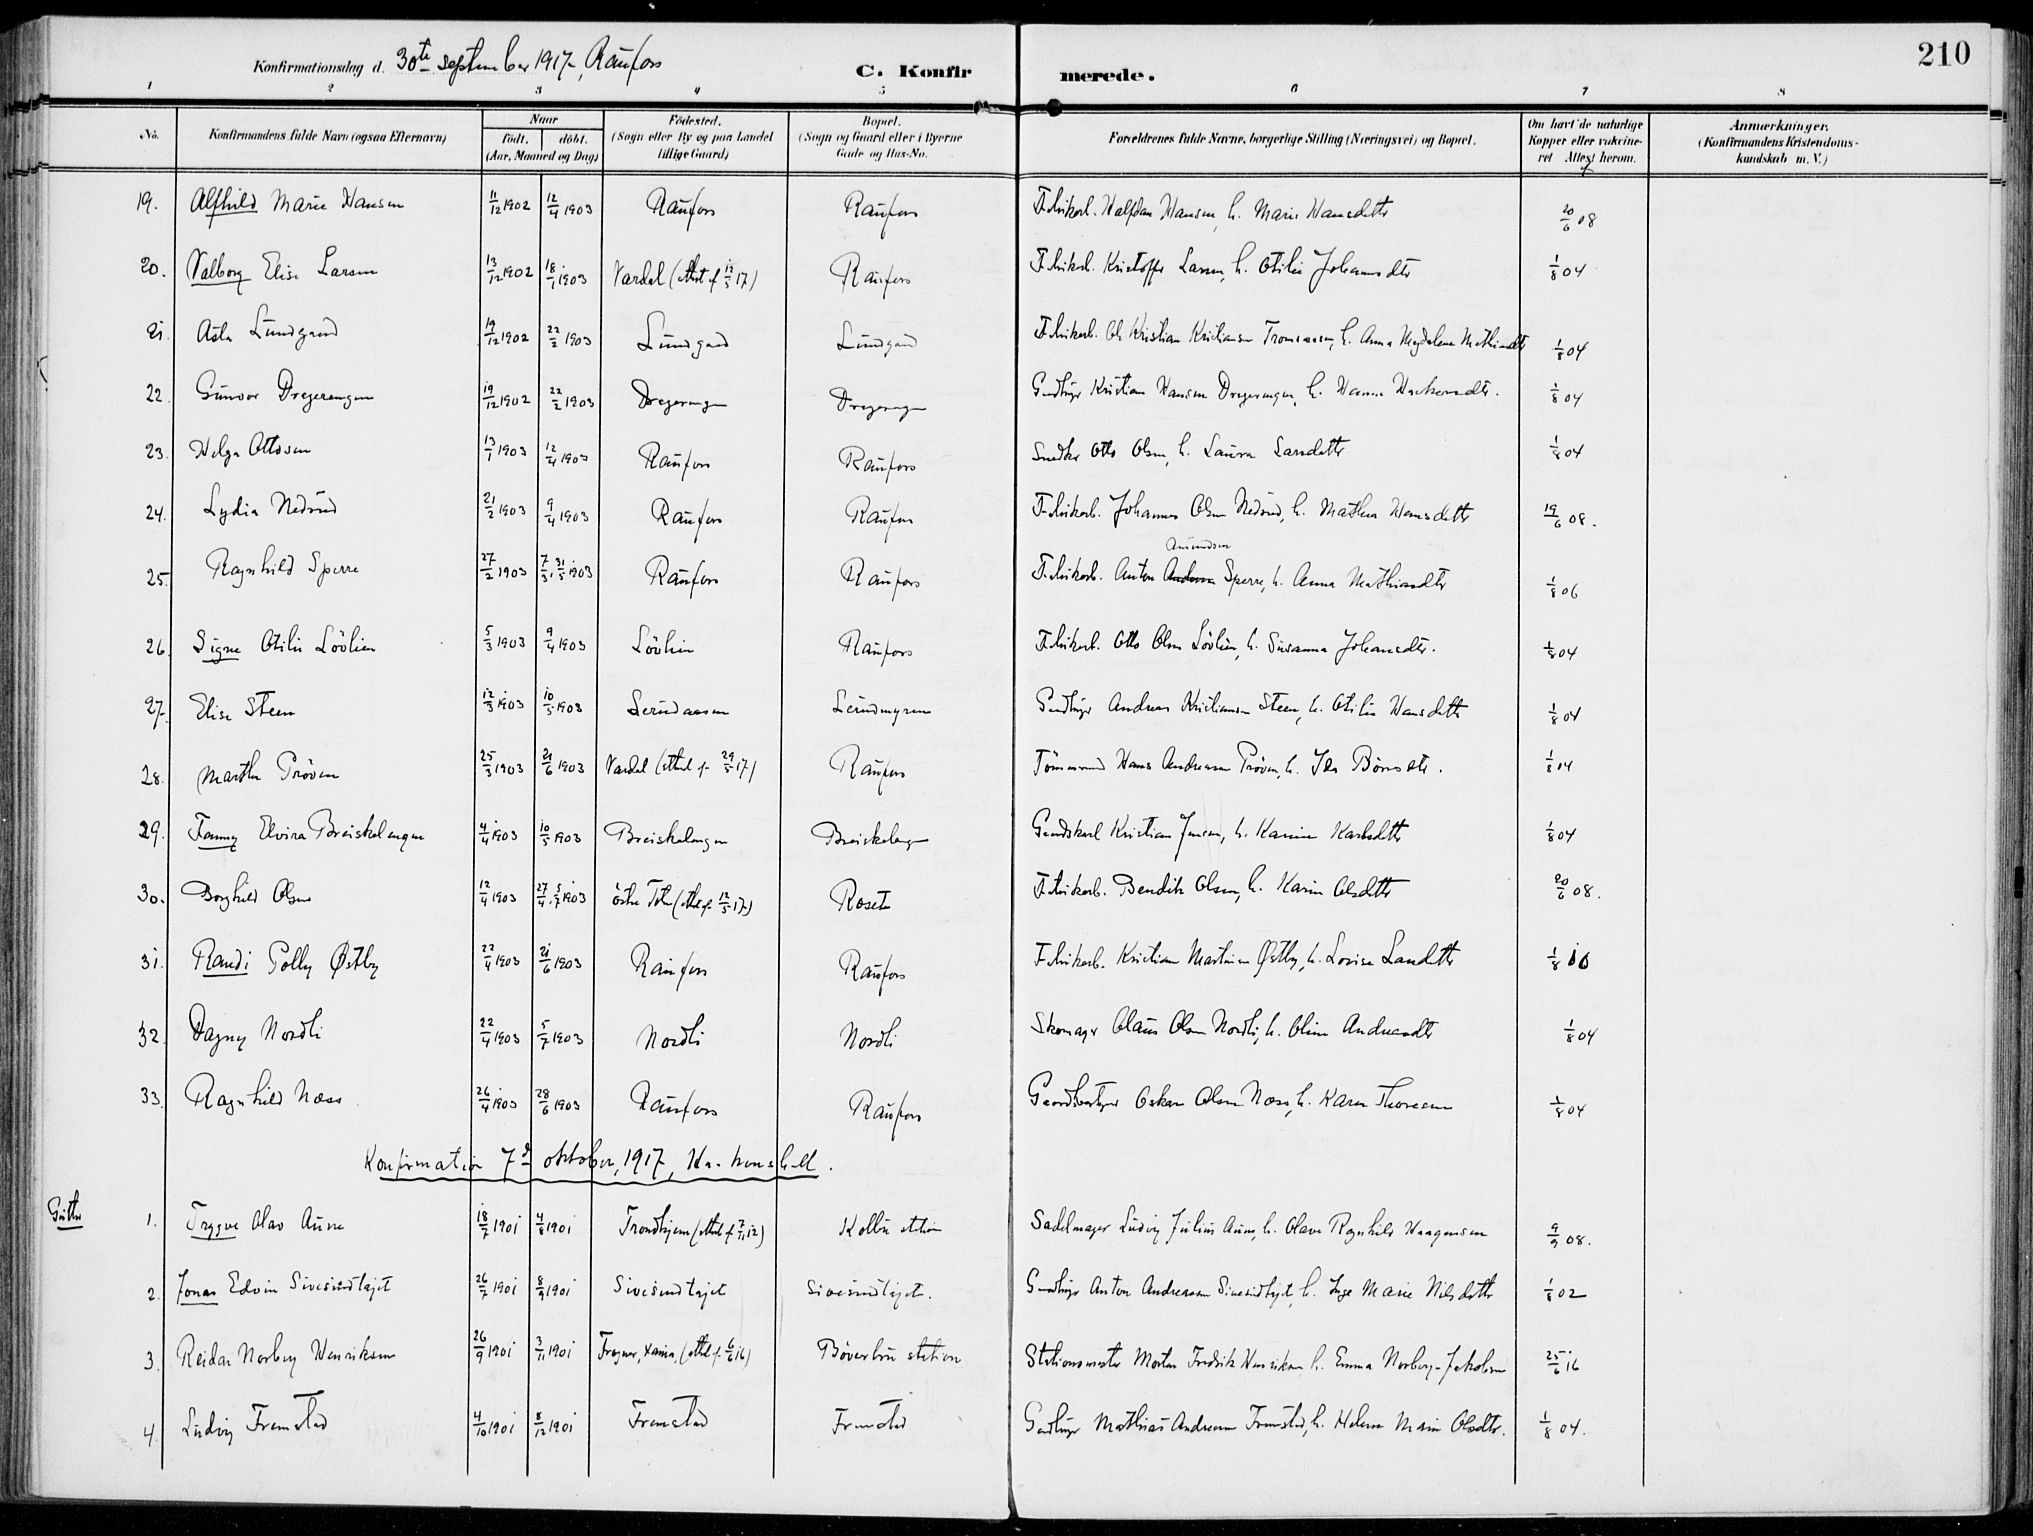 210
Konfirmationsdag d. 30te september 1917, Raufoss
C. Konfirmerede.
1 2 3 4 5 6 7 8
No.
Konfirmandens fulde Navn (ogsaa Efternavn)
Naar
født. døbt.
(Aar, Maaned og Dag)
Fødested.
(Sogn eller By og paa Landet
tillige Gaard)
Bopæl.
(Sogn og Gaard eller i Byerne
Gade og Hus-No.
Forældrenes fulde Navne, borgerlige Stilling (Næringsvei) og Bopæl.
Om havt de naturlige
Kopper eller vakcine-
ret Attest herom.
Anmærkninger.
(Konfirmandens Kristendoms-
kundskab m. V.)
19. Alfhild Marie Hansen 11/12 1902 12/4 1903 Raufoss Raufoss Fabrikarb. Halfdan Hansen, h. Marie Hansdatter 20/6 08
20. Valborg Elise Larsen 13/12 1902 18/1 1903 Vardal (attest af 12/5 17) Raufoss Fabrikarb. Kristoffer Larsen, h. Otilie Johannsdtr 1/8 04
21. Asta Lundgaard 19/12 1902 22/2 1903 Lundgaard Lundgaard Fabrikarb. Ole Kristian Kristiansen, h. Anna Magdalena Mathiasdtr 1/8 04
22. Gunvor Dregerengen 19/12 1902 22/2 1903 Dregerengen Dregerengen Kristian Hansen Dregerengen, h. Hanna 1/8 04
23. Helga Ottosen 13/1 1903 12/4 1903 Raufoss Raufoss Snedker Otto Olsen, h. Laura Larsdatter 1/8 04
24. Lydia Nedrud 21/2 1903 9/4 1903 Raufoss Raufoss Fabrikarb. Johannes Olsen Nedrud, h. Mathea Hansdatter 19/6 08.
25. Ragnhild Sperre 27/2 1903 7/3, 31/5 1903 Raufoss Raufoss Fabrikarb. Anton Amundsen Sperre, h. Anna Mathiasdtr 1/8 06
26. Signe Otilie Lövlien 5/3 1903 9/4 1903 Lövlien Raufoss Fabrikarb. Otto Olsen Lövlien, h. Susanna Johansdtr. 1/8 04
27. Elise Steen 12/3 1903 10/5 1903 Andreas Kristiansen Steen, h. Otilie Hansdatter 1/8 04
28. Martha Pröven 25/3 1903 21/6 1903 Vardal (attest af 29/5 17) Raufoss Tömmermand Hans Andreasen Pröven, h. Ida 1/8 04
29. Fanny Elvira Breiskalengen 4/4 1903 10/5 1903 Breiskalengen Breiskalengen Kristian Jensen, h. Karine Karlsdatter 1/8 04
30. Borghild Olsen 12/4 1903 27/4, 5/7 1903 östre Toten (attest af 12/5 17) Roset Fabrikarb. Bendik Olsen, h. Karin Olsdatter 20/6 08.
31. Randi Polly Østby 22/4 1903 21/6 1903 Raufoss Raufoss Fabrikarb. Kristian Martinsen Østby, h. Lovise Larsdatter 1/8 10
32. Dagny Nordli 22/4 1903 5/7 1903 Nordli Nordli Skomager Olaus Olsen Nordli, h. Oline Andreasdtr 1/8 04
33. Ragnhild Næss 26/4 1903 28/6 1903 Raufoss Raufoss Oskar Olsen Næss, h. Karen Thoresen 1/8 04
Konfirmation 7de oktober, 1917,
Gutter
1. Trygve Olav Aune 18/7 1901 4/8 1901 Trondhjem (attest af 7/7 12) Kolbu station Sadelmager Ludvig Julius Aune, h. Olava Ragnhild Haagensen 9/9 08.
2. Jonas Edvin Sivesindtajet 26/7 1901 8/9 1901 Sivesindtajet Sivesindtajet. Anton Andreassen Sivesindtajet, h. Inge Marie Nilsdatter 1/8 02
3. Reidar Norberg Henriksen 26/9 1901 3/11 1901 (attest af 6/6 16) Böverbru station Stationsmester Morten Fredrik Henriksen h. Emma Norberg-Jakobsen 25/6 16
4. Ludvig Fremstad 4/10 1901 8/12 1901 Fremstad Fremstad Mathias Andreasen Fremstad, h. Helene Marie Olsdtr. 1/8 04.